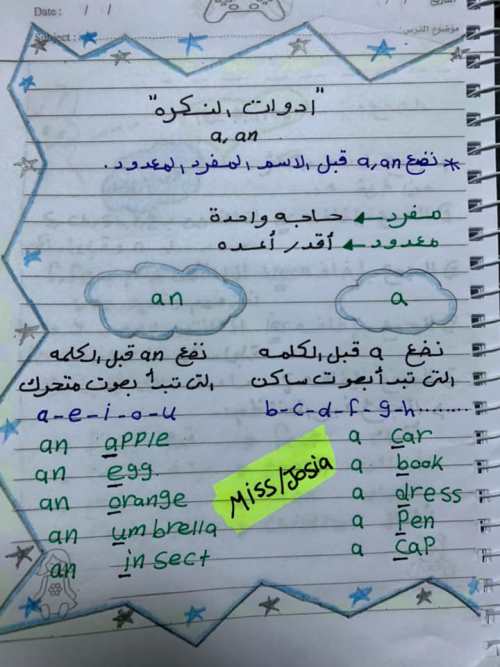 Date : / /
التاريخ / /
Subject :
موضوع الدرس:
"ادوات النكره"
a, an
* نضع a, an قبل الاسم المفرد المعدود.
مفرد ← حاجه واحدة
معدود ← أقدر أعده
a
an
نضع a قبل الكلمه
التى تبدأ بصوت ساكن
b-c-d-f-g-h........
a car
a book
a dress
a Pen
a caP
نضع an قبل الكلمه
التى تبدأ بصوت متحرك
a-e-i-o-u
an apple
an egg.
an orange
an umbrella
an insect
Miss/Josia